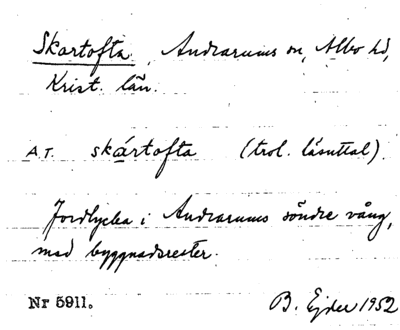 Skartofta Andrarums sn, Albo hd,
Krist. län.
A.T. skártofta (trol. läsuttal).
Jordlycka i Andrarums söndre vång,
med byggnadsrester.
Nr 5911. B. Ejder 1952